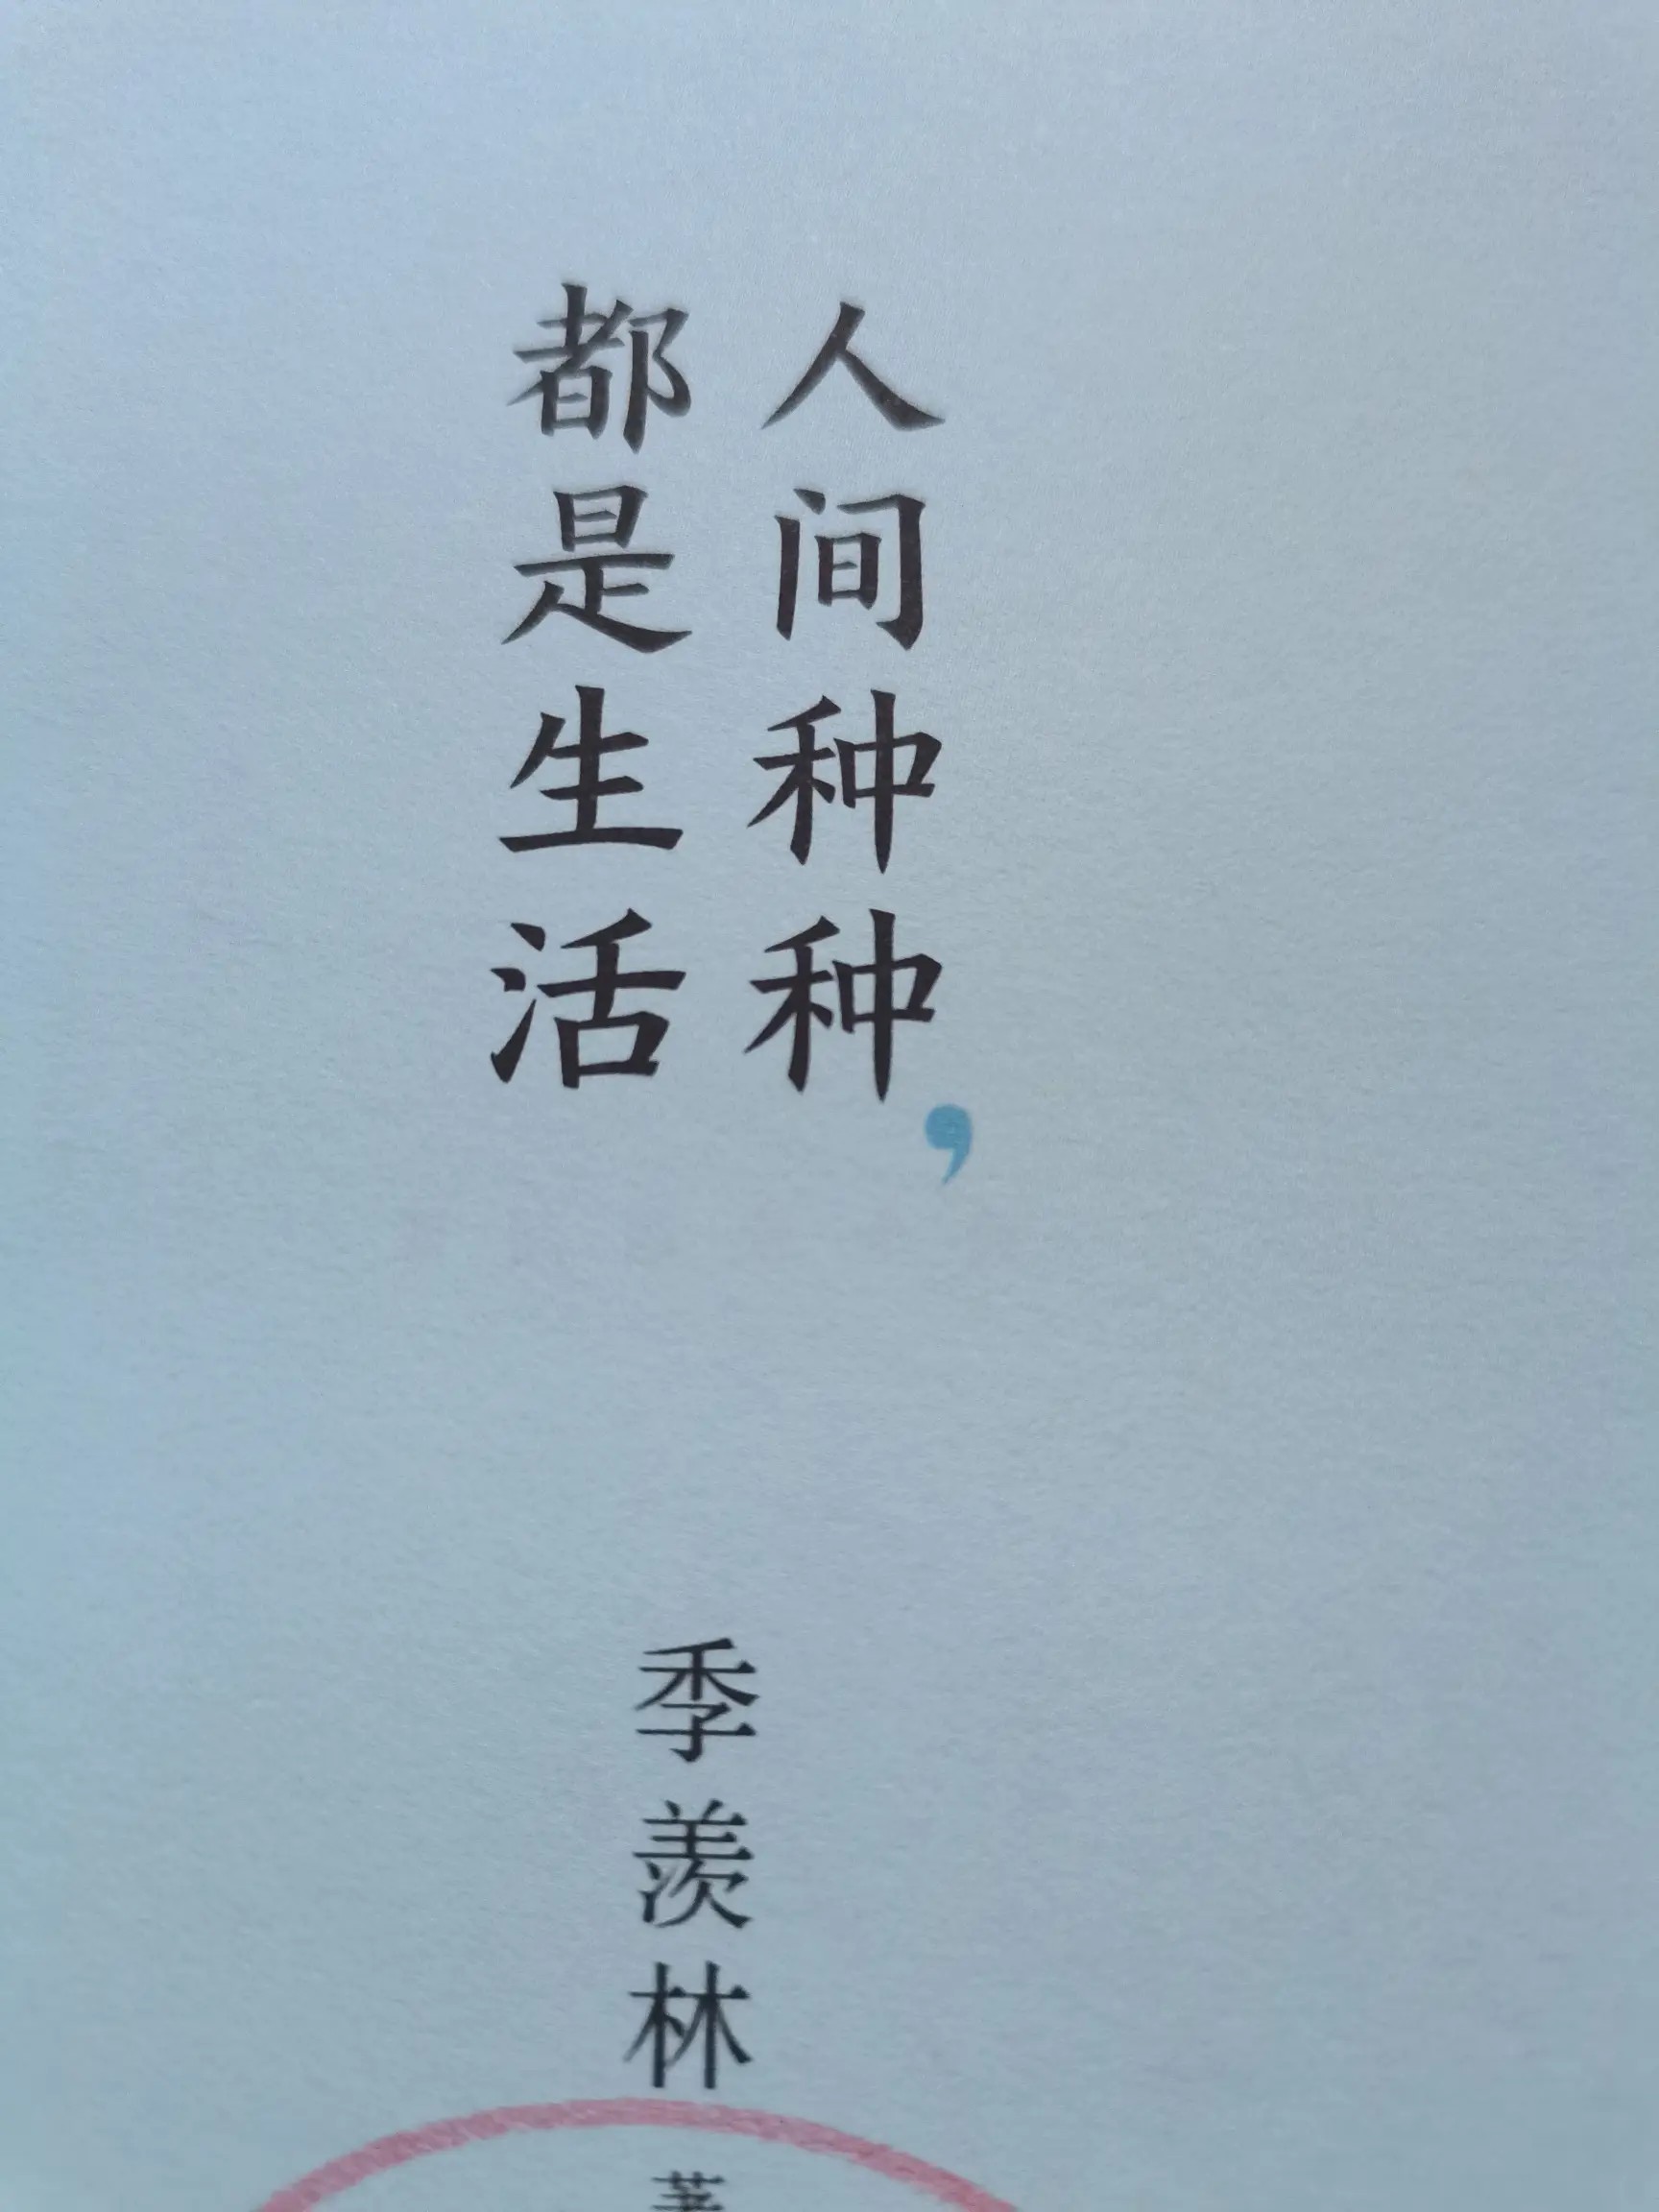 人间种种，
都是生活
季羡林
著